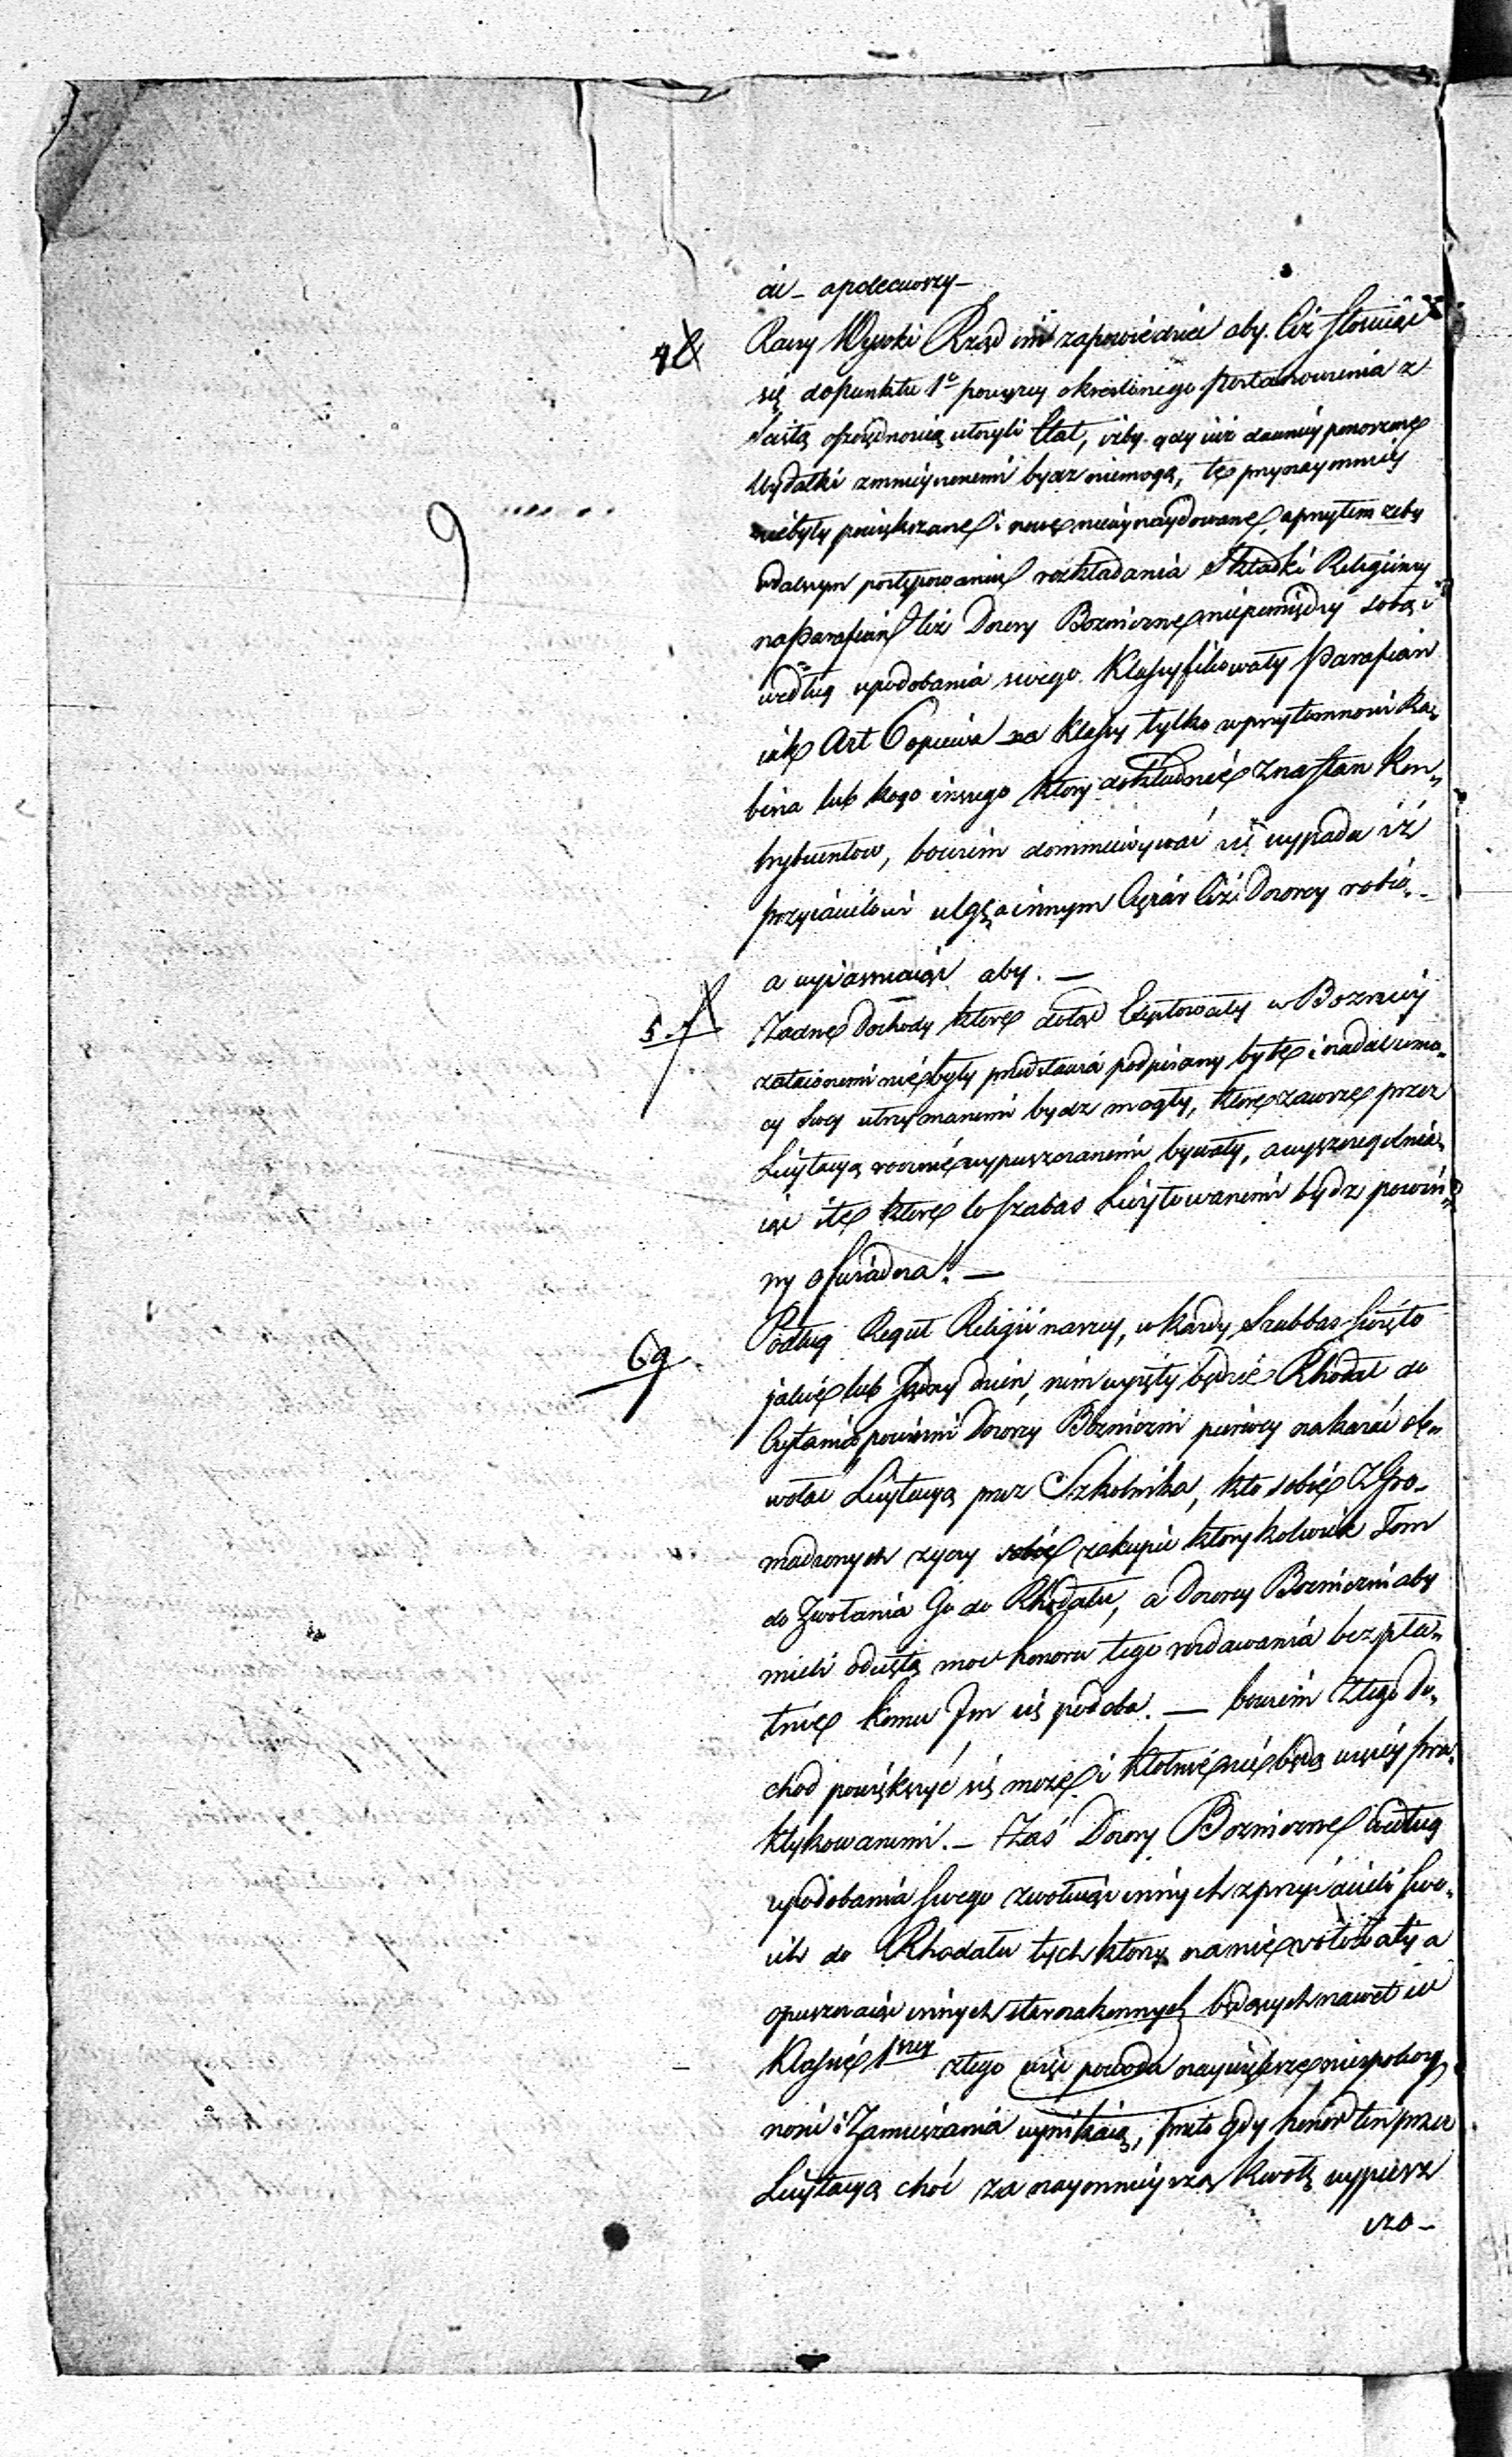 ći – apolecuszy –
4
Raczy Wysoki Rząd im zapowiedzieć aby Ciż stosując
się do punktu 1º powyzey okreslonego postanowienia z
Scisłą oszczędnością utozyli Etat, izby gdy iuż dawniey ponoszone
Wydatki zmnieyszonemi bydz niemogą, te przynaymniey
niebyły powiększane i nowe niewynaydowane, a przytem zeby
w dalszym postępowaniu rozkładania Składki Religiiney
na Parafian Ciż Dozory Boznicze niepomiędzy sobą i
według upodobania swego Klasyfikowały Parafian
iak Art 6 opiewa na klasy tylko w przytomnosci Ra„
bina lub kogo inszego ktory dokładnie zna stan kon„
trybuentow, bowiem domniewywać się wypada iż
przyiacielowi ulgę a innym Ciężar Ciż Dozorcy robią –
a wyiasniaiąc aby. –
5
Zadne Dochody ktore dotąd Exystowały w Boznicy
zataionemi nie były przedstawia podpisany by te i nadal w mo„
cy swej utrzymanemi bydz mogły, ktore zawsze przez
Licytacyą rocznie wypuszczanemi bywały, a wyszczegolnia„
iąc i te ktore co szabas Licytowanemi bydz powin„
ny oswiadcza. –
6
Podług Reguł Religii naszey, w kazdy Szabbas Swięto
jakie lub Sądny dzien, nim wyięty będzie Rhodał do
Czytania powinni Dozorcy Bozniczni pierwey nakazać ob„
wołac Licytacyą przez Szkolnika, kto sobie z Gro„
madzonych zyczy sobie zakupic ktorykolwiek Tom
do Zwołania Go do Rhodału, a Dozorcy Bozniczni aby
mieli odiętą moc honoru tego rozdawania bezpła„
tnie komu Im się podoba. – bowiem z tego Do„
chod powiększyć się moze i kłotnie nie będą więcey pra„
ktykowanemi. – Zaś Dozory Boznicze według
upodobania swego zwołuiąc innych z przyiacieli swo„
ich do Rhodału tych ktorzy na nie wotowały a
opuszczaiąc innych starozakonnych będących nawet w
Klassie 1szey z tego więc powodu naywiększe niespokoy„
nosci i Zamieszania wynikaią, przeto gdy honor ten przez
Licytacyą choć za naymnieyszą kwotę wypusz
czo –